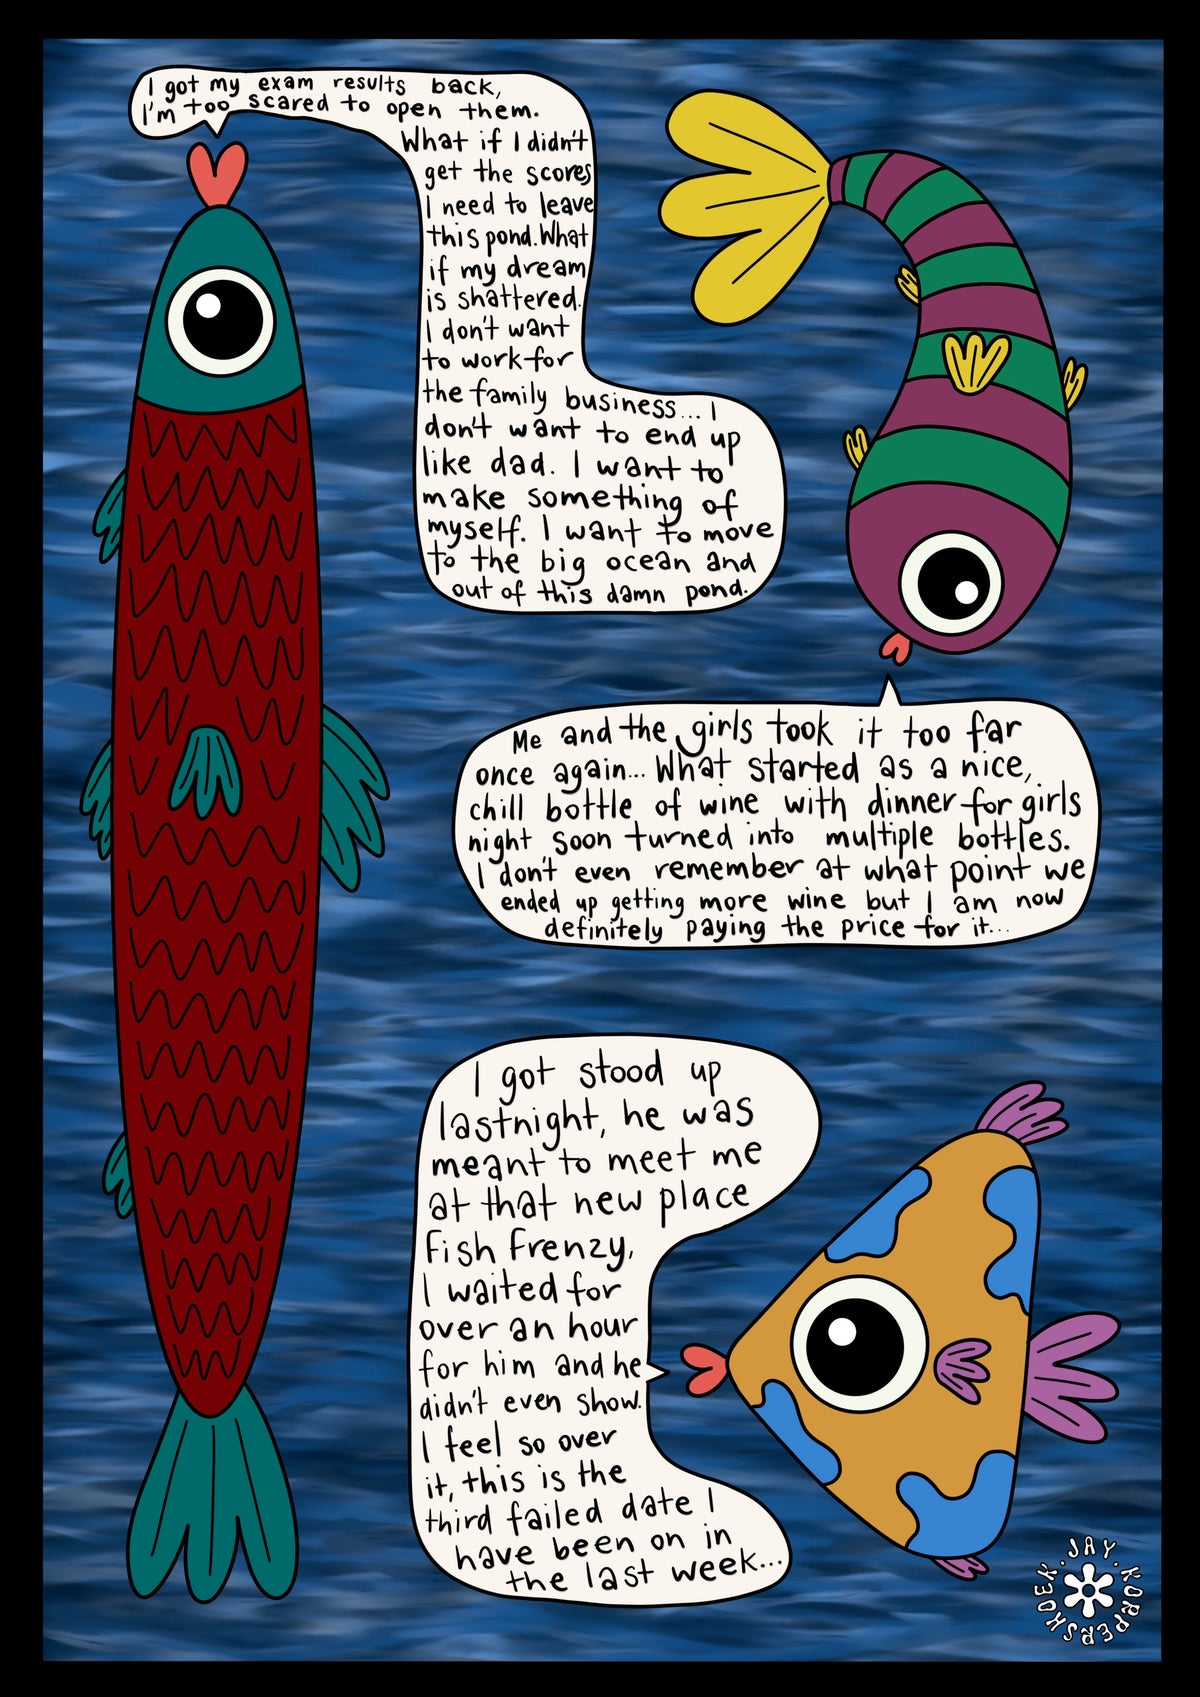 I got my exam results back,
I'm too scared to open them.
What if I didn't
get the scores
I need to leave
this pond. What
if my dream
is shattered.
I don't want
to work for
the family business... I
don't want to end up
like dad. I want to
make something of
myself. I want to move
to the big ocean and
out of this damn pond.
Me and the girls took it too far
once again... What started as a nice,
chill bottle of wine with dinner for girls
night soon turned into multiple bottles.
I don't even remember at what point we
ended up getting more wine but I am now
definitely paying the price for it...
I got stood up
lastnight, he was
meant to meet me
at that new place
Fish Frenzy,
I waited for
over an hour
for him and he
didn't even show.
I feel so over
it, this is the
third failed date I
have been on in
the last week...
JAY. KORPERSHOEK.